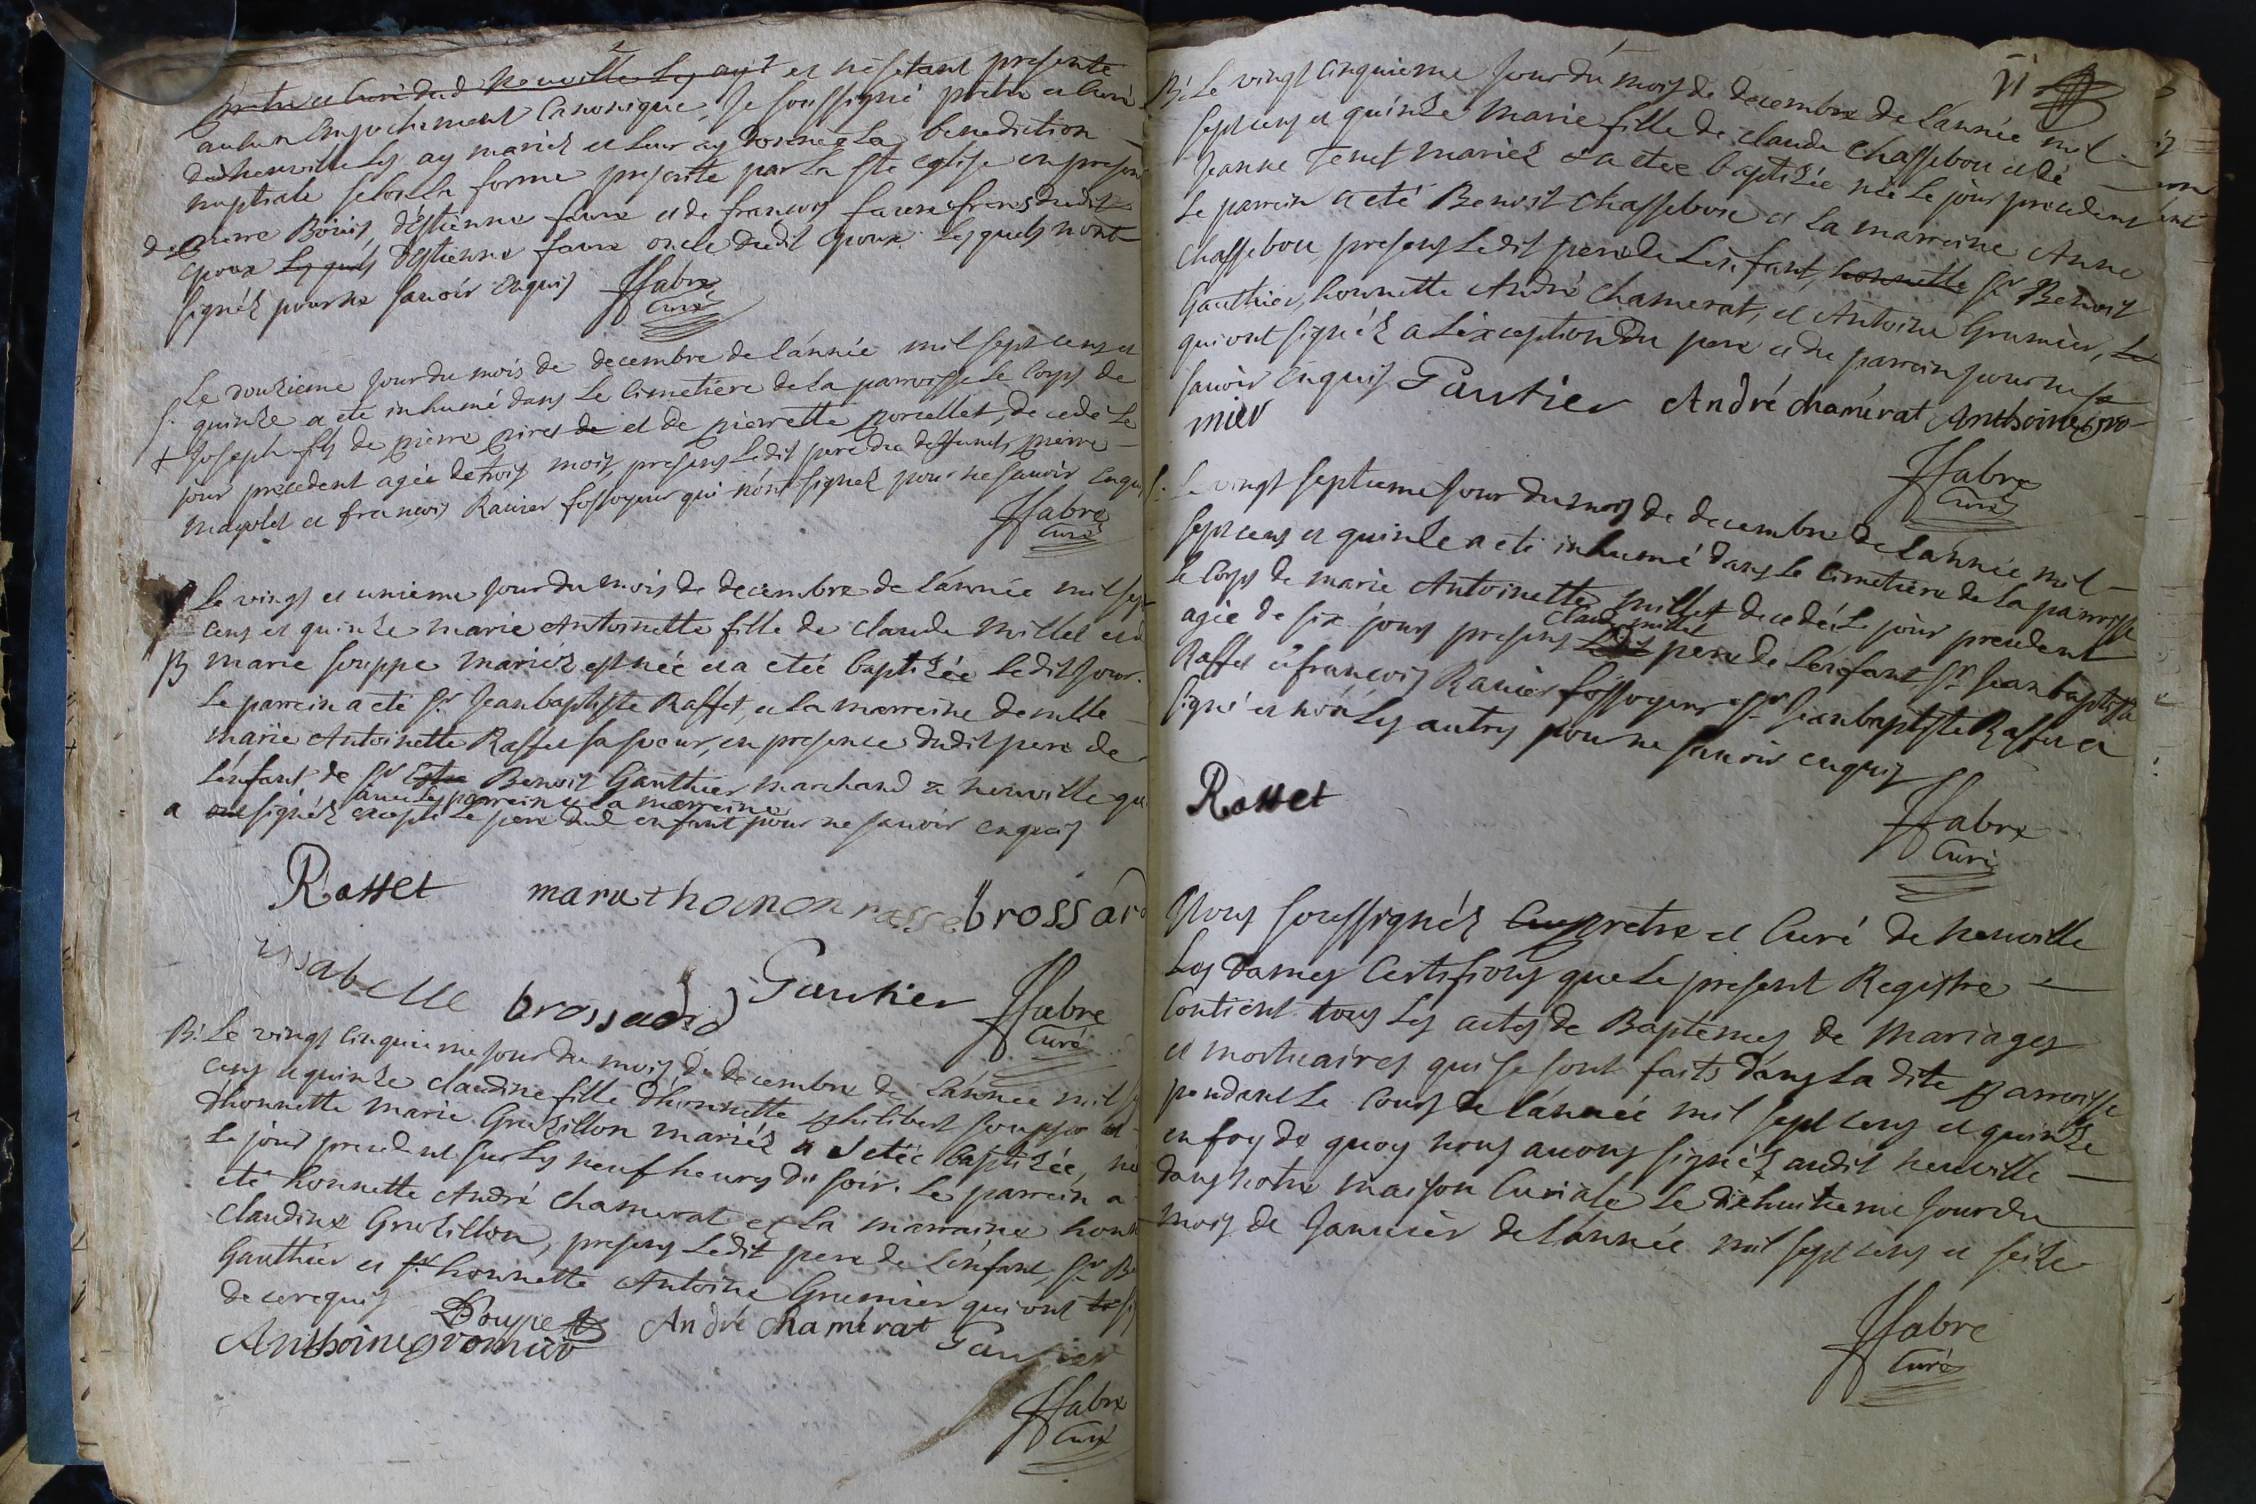 pretre et Curé dud neuville les ay et nesetant presenté
aucun empechement Canonique, Je soussigné pretre et Curé
dud neuville les ay mariés et leur ay donné la benediction
nuptiale selon la forme prescrite par la ste eglise en presen
de pierre Bouis, d'estienne faure et de francois faure freres dudit
epoux lesquels d'estienne faure oncle dudit epoux lesquels n'ont
signés pour ne savoir enquis JFabre
Curé
S. Le douzieme jour du mois de decembre de l'année mil sept cens et
quinze a eté inhumé dans Le Cimetiere de La parroisse Le Corps de
+ Joseph fils de pierre de et de pierrette porcellet, decedé Le
jour precedent agée de trois mois, presens Ledit pere du deffunct, pierre
mayolet et francois Ravier fossoyeur qui n'ont signez pour ne savoir enquis
JFabre
Curé
Le vingt et unieme jour du mois de decembre de l'année mil sept
cens et quinze marie Antoinette fille de claude Millet et d
B marie souppe mariez est née et a eteé baptisée Ledit jour.
Le parrein a eté sr Jeanbaptiste Raffet, et La marreine demlle
marie Antoinette Raffet sa soeur, en presence dudit pere de
L'enfant de sr Benoist Gauthier marchand a neuville qui
avec Le parrein et La marreine
a ont signés excepté Le pere dud enfant pour ne savoir enquis
Rasset maria thoinon rasse brossard
issabelle brossard Gautier JFabre
Curé
B. Le vingt cinquieme jour du mois de decembre de L'année mil s
cens et quinze claudine fille d'honnette philibert souppe et
d'honnette marie Gruzillon mariés a eteé baptisée, né
Le jour precedent sur Les neuf heures du soir. Le parrein a
eté honnette André Chamerat et La marraine honn
claudine Gruzillon, presens Ledit pere de L'enfant, sr Be
Gauthier et sr honnette Antoine Grumier qui ont si
de ce requis Souppe André chamérat Gautier
Anthoine gromier
JFabre
Curé
11
B. Le vingt cinquieme jour du mois de decembre de L'année mil
sept cens et quinze marie fille de claude Chassebou et de
Jeanne Tenet mariez a eteé baptisée née Le jour precedent
Le parrein a eté Benoist Chassebou et La marreine Anne
Chassebou presens Ledit pere de L'enfant, honnette sr Benoist
Gauthier, honnette André Chamerat, et Antoine Grumier, Le
qui ont signéz a L'exception du pere et du parrein pour ne
savoir enquis Gautier André chamérat Anthoine gro
mier
JFabre
Curé
S. Le vingt septieme jour du mois de decembre de L'année mil
sept cens et quinze a eté inhumé dans Le Cimetiere de La parroisse
Le Corps de marie Antoinette millet decedée Le jour precedent
claude millet
agée de six jours presens Ledit pere de L'enfant, sr Jeanbaptiste
Raffet et francois Ravier fossoyeur, sr Jeanbaptiste Raffet a
signé et non Les autres pour ne savoir enquis
Rasset
JFabre
Curé
Nous soussignés Cu pretre et Curé de neuville
Les dames Certifions que Le present Registre
Contient tous Les actes de Baptemes de mariages
et mortuaires qui se sont faits dans La dite parroisse
pendant Le Cours de L'année mil sept cens et quinze
en foy de quoy nous avons signéz audit neuville
dans notre maison Curiale Le dixhuitieme jour du
mois de Janvier de L'année mil sept cens et seize
JFabre
Curé